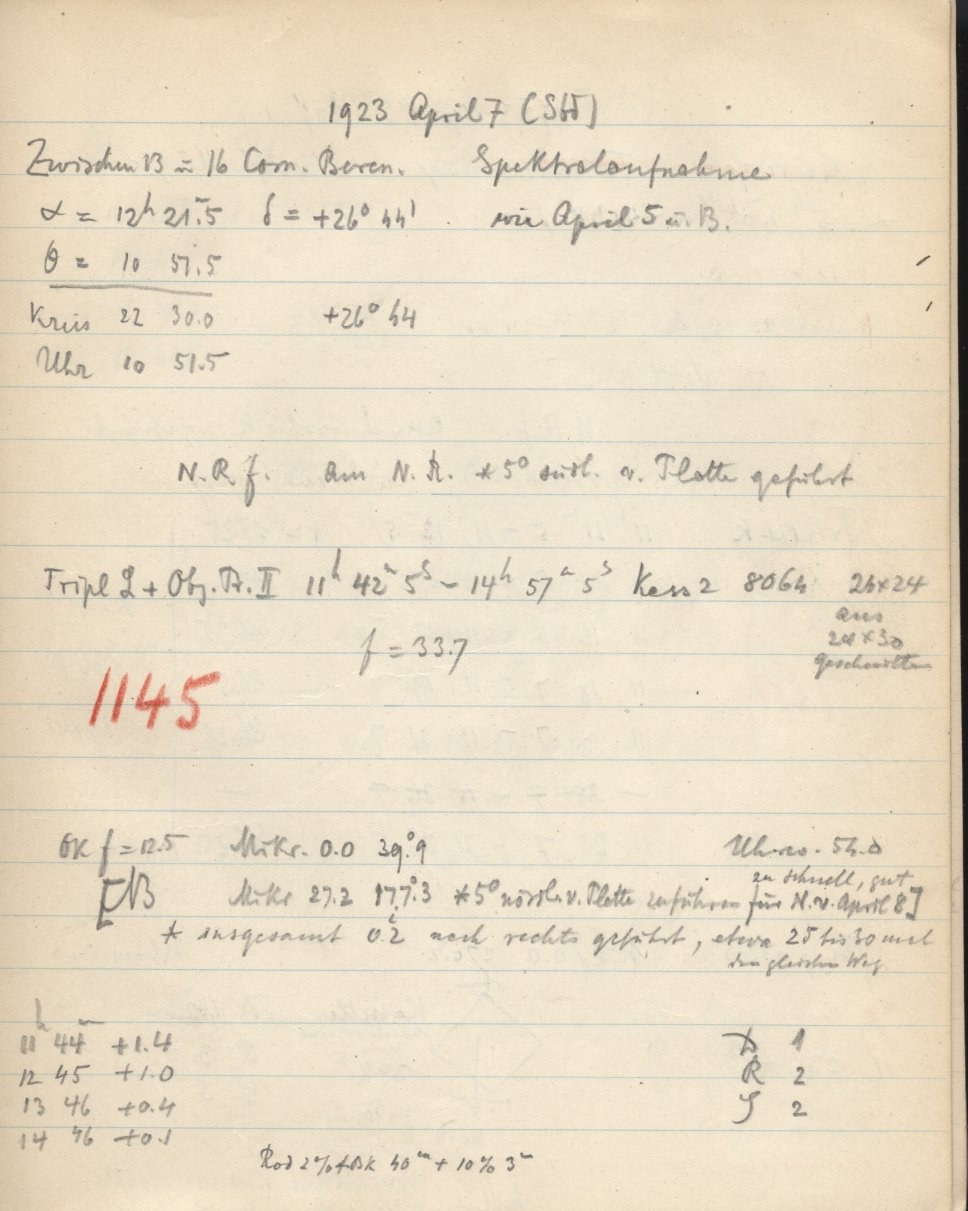 1923 April 7 (Sbd)
Zwischen 13 u 16 Com. Beren. Spektralaufnahme
α = 12h 21m.5 δ = +26° 44' wie April 5 u. 13.
θ = 10 51.5
Kreis 22 30.0 +26° 44
Uhr 10 51.5
N.R.f. am N.R. *5° südl. v. Platte geführt
Tripl L + Obj. Pr. II 11h 42m 5s – 14h 57m 5s Kass 2 8064 24×24
aus
24×30
geschnitten
f = 33.7
1145
OK f = 12.5 Mikr. 0.0 39°.9 Uhrw. 54.0
zu schnell, gut
[NB Mikr 27.2 177°.3 *5° nördl. v. Platte zu führen für N. v. April 8]
* insgesamt 0.2 nach rechts geführt, etwa 25 bis 30 mal
den gleichen Weg
11h 44m +1.4 D 1
12 45 +1.0 R 2
13 46 +0.4 S 2
14 46 +0.1
Rod 2% + BK 40m + 10% 3m